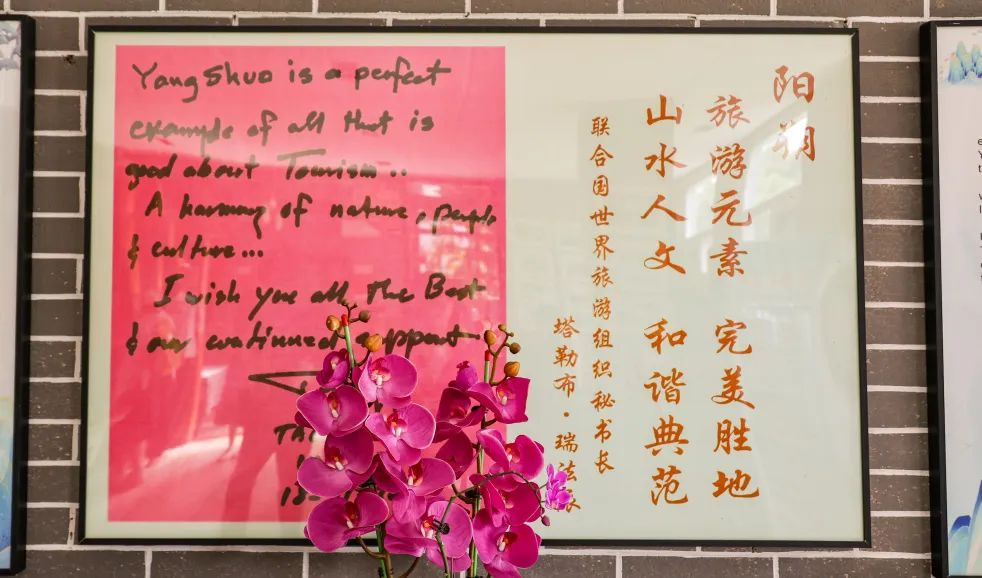 Yangshuo is a perfect
example of all that is
good about Tourism..
A harmony of nature, people
& culture...
I wish you all the Best
& our continued support
阳朔
旅游元素 完美胜地
山水人文 和谐典范
联合国世界旅游组织秘书长
塔勒布·瑞法